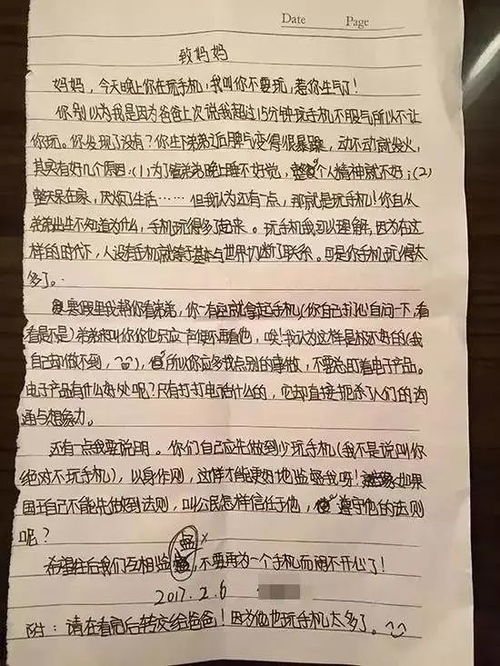 Date Page
致妈妈
妈妈，今天晚上你在玩手机，我叫你不要玩，惹你生气了！
你别以为我是因为爸爸上次说我超过15分钟玩手机不服气所以不让
你玩。你发现了没有？你生下弟弟后脾气变得很暴躁，动不动就发火，
其实有好几个原因：(1)为了管弟弟晚上睡不好觉，整个人精神就不好；(2)
整天呆在家，厌烦了生活……但我认为还有一点，那就是玩手机！你自从
弟弟出生不知道为什么，手机玩得多了起来。玩手机我可以理解，因为在这
样的时代下，人没有手机就等于基本与世界切断了联系。可是你手机玩得太
多了。
寒假里我帮你看弟弟，你一有空就拿起手机(你自己扪心自问一下，看
看是不是)弟弟来叫你你也只应一声便不再看他，唉！我认为这样是极不好的(我
自己却做不到，)，所以你应多找点别的事做，不要总盯着电子产品。
电子产品有什么好处呢？只有打打电话什么的，它却直接扼杀了人们的沟
通与想象力。
还有一点我要说明。你们自己应先做到少玩手机(我不是说叫你
绝对不玩手机)，以身作则，这样才能更好地监督我呀！如果
国王自己不能先做到法则，叫公民怎样信任他，遵守他的法则
呢？
希望往后我们互相监督，不要再为一个手机而闹不开心了！
2017.2.6
附：请在看完后转交给爸爸！因为他也玩手机太多了。